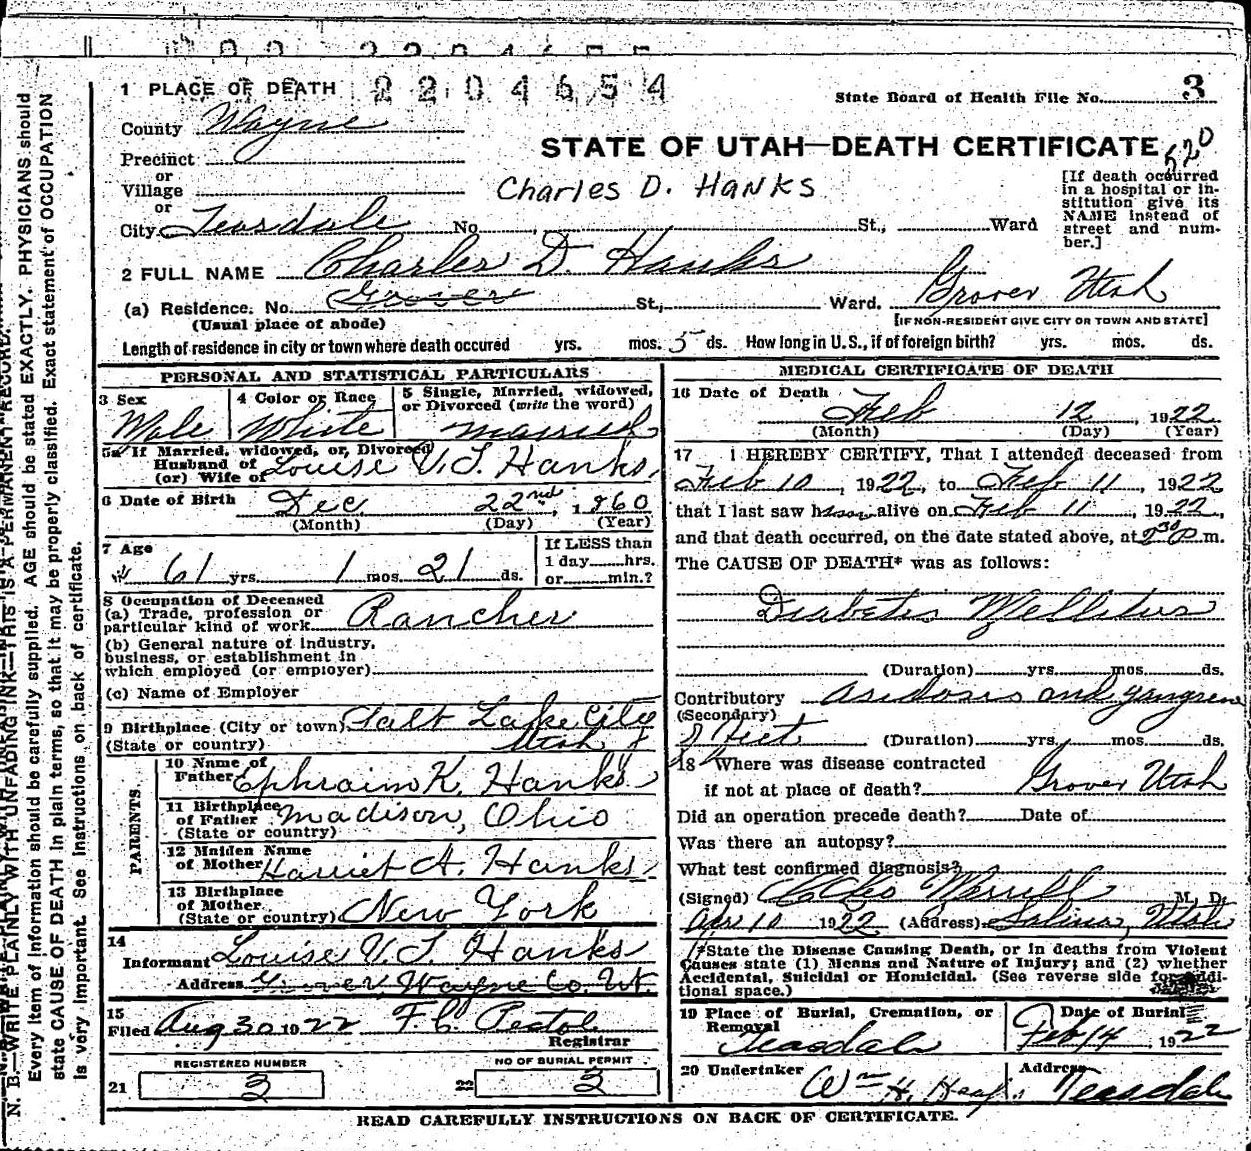 2204654
1 PLACE OF DEATH
State Board of Health File No. 3
County Wayne
STATE OF UTAH—DEATH CERTIFICATE
520
Precinct
or
Village
or
Charles D. Hanks
[If death occurred
in a hospital or in-
stitution give its
NAME instead of
street and num-
ber.]
City Teasdale No. St., Ward
2 FULL NAME Charles D. Hanks
(a) Residence. No. Grover St., Ward. Grover Utah
(Usual place of abode) [IF NON-RESIDENT GIVE CITY OR TOWN AND STATE]
Length of residence in city or town where death occured yrs. mos. 5 ds. How long in U.S., if of foreign birth? yrs. mos. ds.
PERSONAL AND STATISTICAL PARTICULARS
3 Sex Male
4 Color or Race White
5 Single, Married, widowed,
or Divorced (write the word)
Married
5a If Married, widowed, or Divorced
Husband of
(or) Wife of Louise V. T. Hanks
6 Date of Birth Dec 22nd, 1860
(Month) (Day) (Year)
7 Age 61 yrs. 1 mos. 21 ds.
If LESS than
1 day hrs.
or min.?
8 Occupation of Deceased
(a) Trade, profession or
particular kind of work Rancher
(b) General nature of industry,
business, or establishment in
which employed (or employer)
(c) Name of Employer
9 Birthplace (City or town) Salt Lake City
(State or country) Utah
PARENTS
10 Name of
Father Ephraim K. Hanks
11 Birthplace
of Father Madison, Ohio
(State or country)
12 Maiden Name
of Mother Harriet A. Hanks
13 Birthplace
of Mother
(State or country) New York
14
Informant Louise V. T. Hanks
Address Grover, Wayne Co. Ut.
15
Filed Aug 30 1922 F. C. Pectol
Registrar
REGISTERED NUMBER
21 3
NO OF BURIAL PERMIT
22 3
MEDICAL CERTIFICATE OF DEATH
16 Date of Death
Feb 12, 1922
(Month) (Day) (Year)
17 I HEREBY CERTIFY, That I attended deceased from
Feb 10, 1922, to Feb 11, 1922
that I last saw him alive on Feb 11, 1922,
and that death occurred, on the date stated above, at 2 30 P. m.
The CAUSE OF DEATH* was as follows:
Diabetis Mellitus
(Duration) yrs. mos. ds.
Contributory Asidosis and gangrene
(Secondary)
of Feet (Duration) yrs. mos. ds.
18 Where was disease contracted
if not at place of death? Grover Utah
Did an operation precede death? Date of
Was there an autopsy?
What test confirmed diagnosis?
(Signed) Merrill M. D.
Apr 10 1922 (Address) Salina, Utah
*State the Disease Causing Death, or in deaths from Violent
Causes state (1) Means and Nature of Injury; and (2) whether
Accidental, Suicidal or Homicidal. (See reverse side for addi-
tional space.)
19 Place of Burial, Cremation, or
Removal
Teasdale
Date of Burial
Feb 14, 1922
20 Undertaker
Wm H.
Address
Teasdale
READ CAREFULLY INSTRUCTIONS ON BACK OF CERTIFICATE.
N. B.—WRITE PLAINLY WITH UNFADING INK—THIS IS A PERMANENT RECORD.
Every item of information should be carefully supplied. AGE should be stated EXACTLY. PHYSICIANS should
state CAUSE OF DEATH in plain terms, so that it may be properly classified. Exact statement of OCCUPATION
is very important. See Instructions on back of certificate.